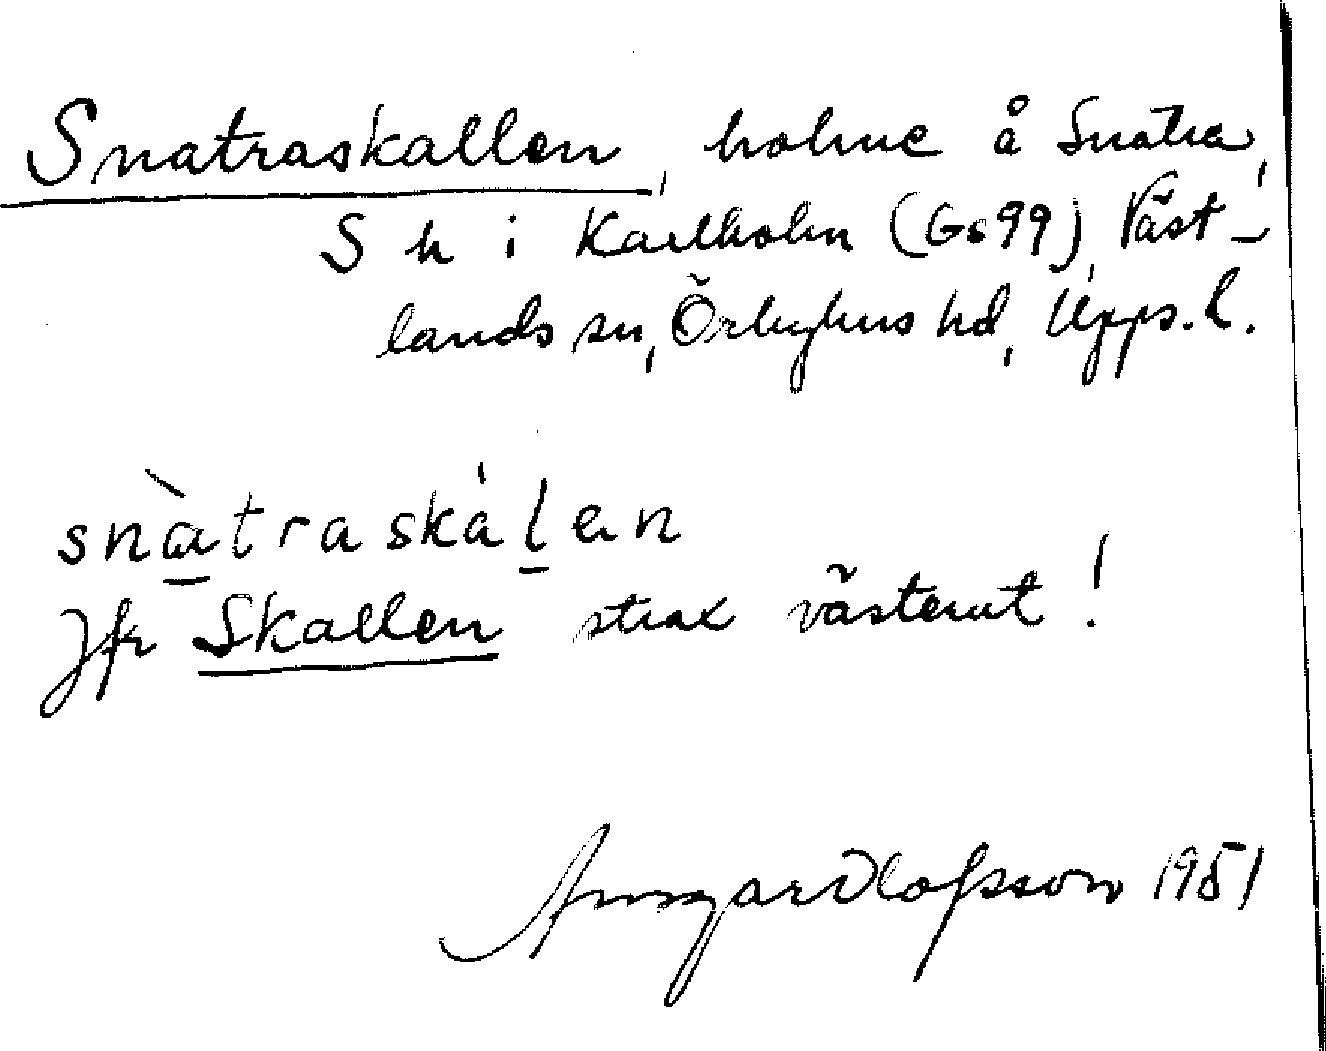 Snatraskallen, holme å Snatra,
S h i Karlholm (Gs 99), Väst-
lands sn, Örbyhus hd, Upps. l.
snàtraskálen
Jfr Skallen strax västerut!
Ansgar Olofsson 1951